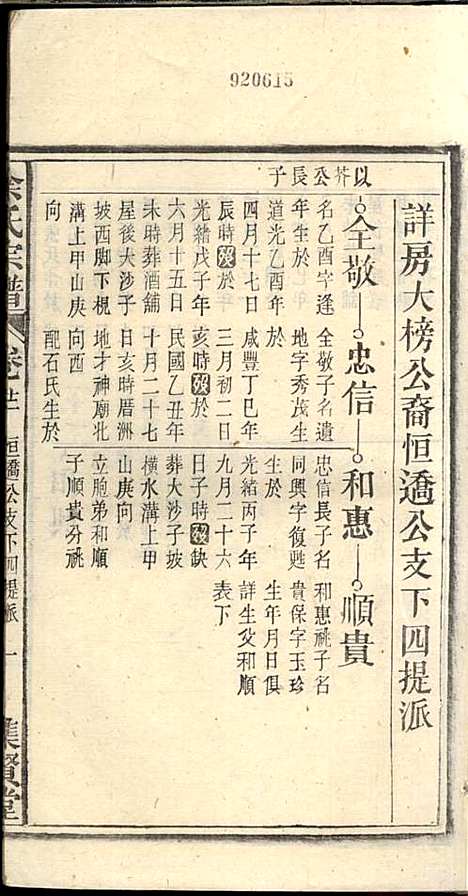 920615
詳房大榜公裔恒公支下四提派
以芥公長子
全敬
忠信
和惠
順貴
名乙酉字逢
年生於
道光乙酉年
四月十七日
辰時歿於
光緒戊子年
六月十五日
未時葬酒舖
屋後大沙子
坡西脚下梘
溝上甲山庚
向
全敬子名遺
地字秀茂生
於
咸豐丁巳年
三月初二日
亥時歿於
民國乙丑年
十月二十七
日亥時厝洲
地才神廟北
向酉
配石氏生於
忠信長子名
同興字復甦
生於
光緒丙子年
九月二十六
日子時歿缺
葬大沙子坡
橫水溝上甲
山庚向
立胞弟和順
子順貴分祧
和惠祧子名
貴保字玉珍
生年月日俱
詳生父和順
表下
余氏宗譜
恒公支下四提派
一
集賢堂